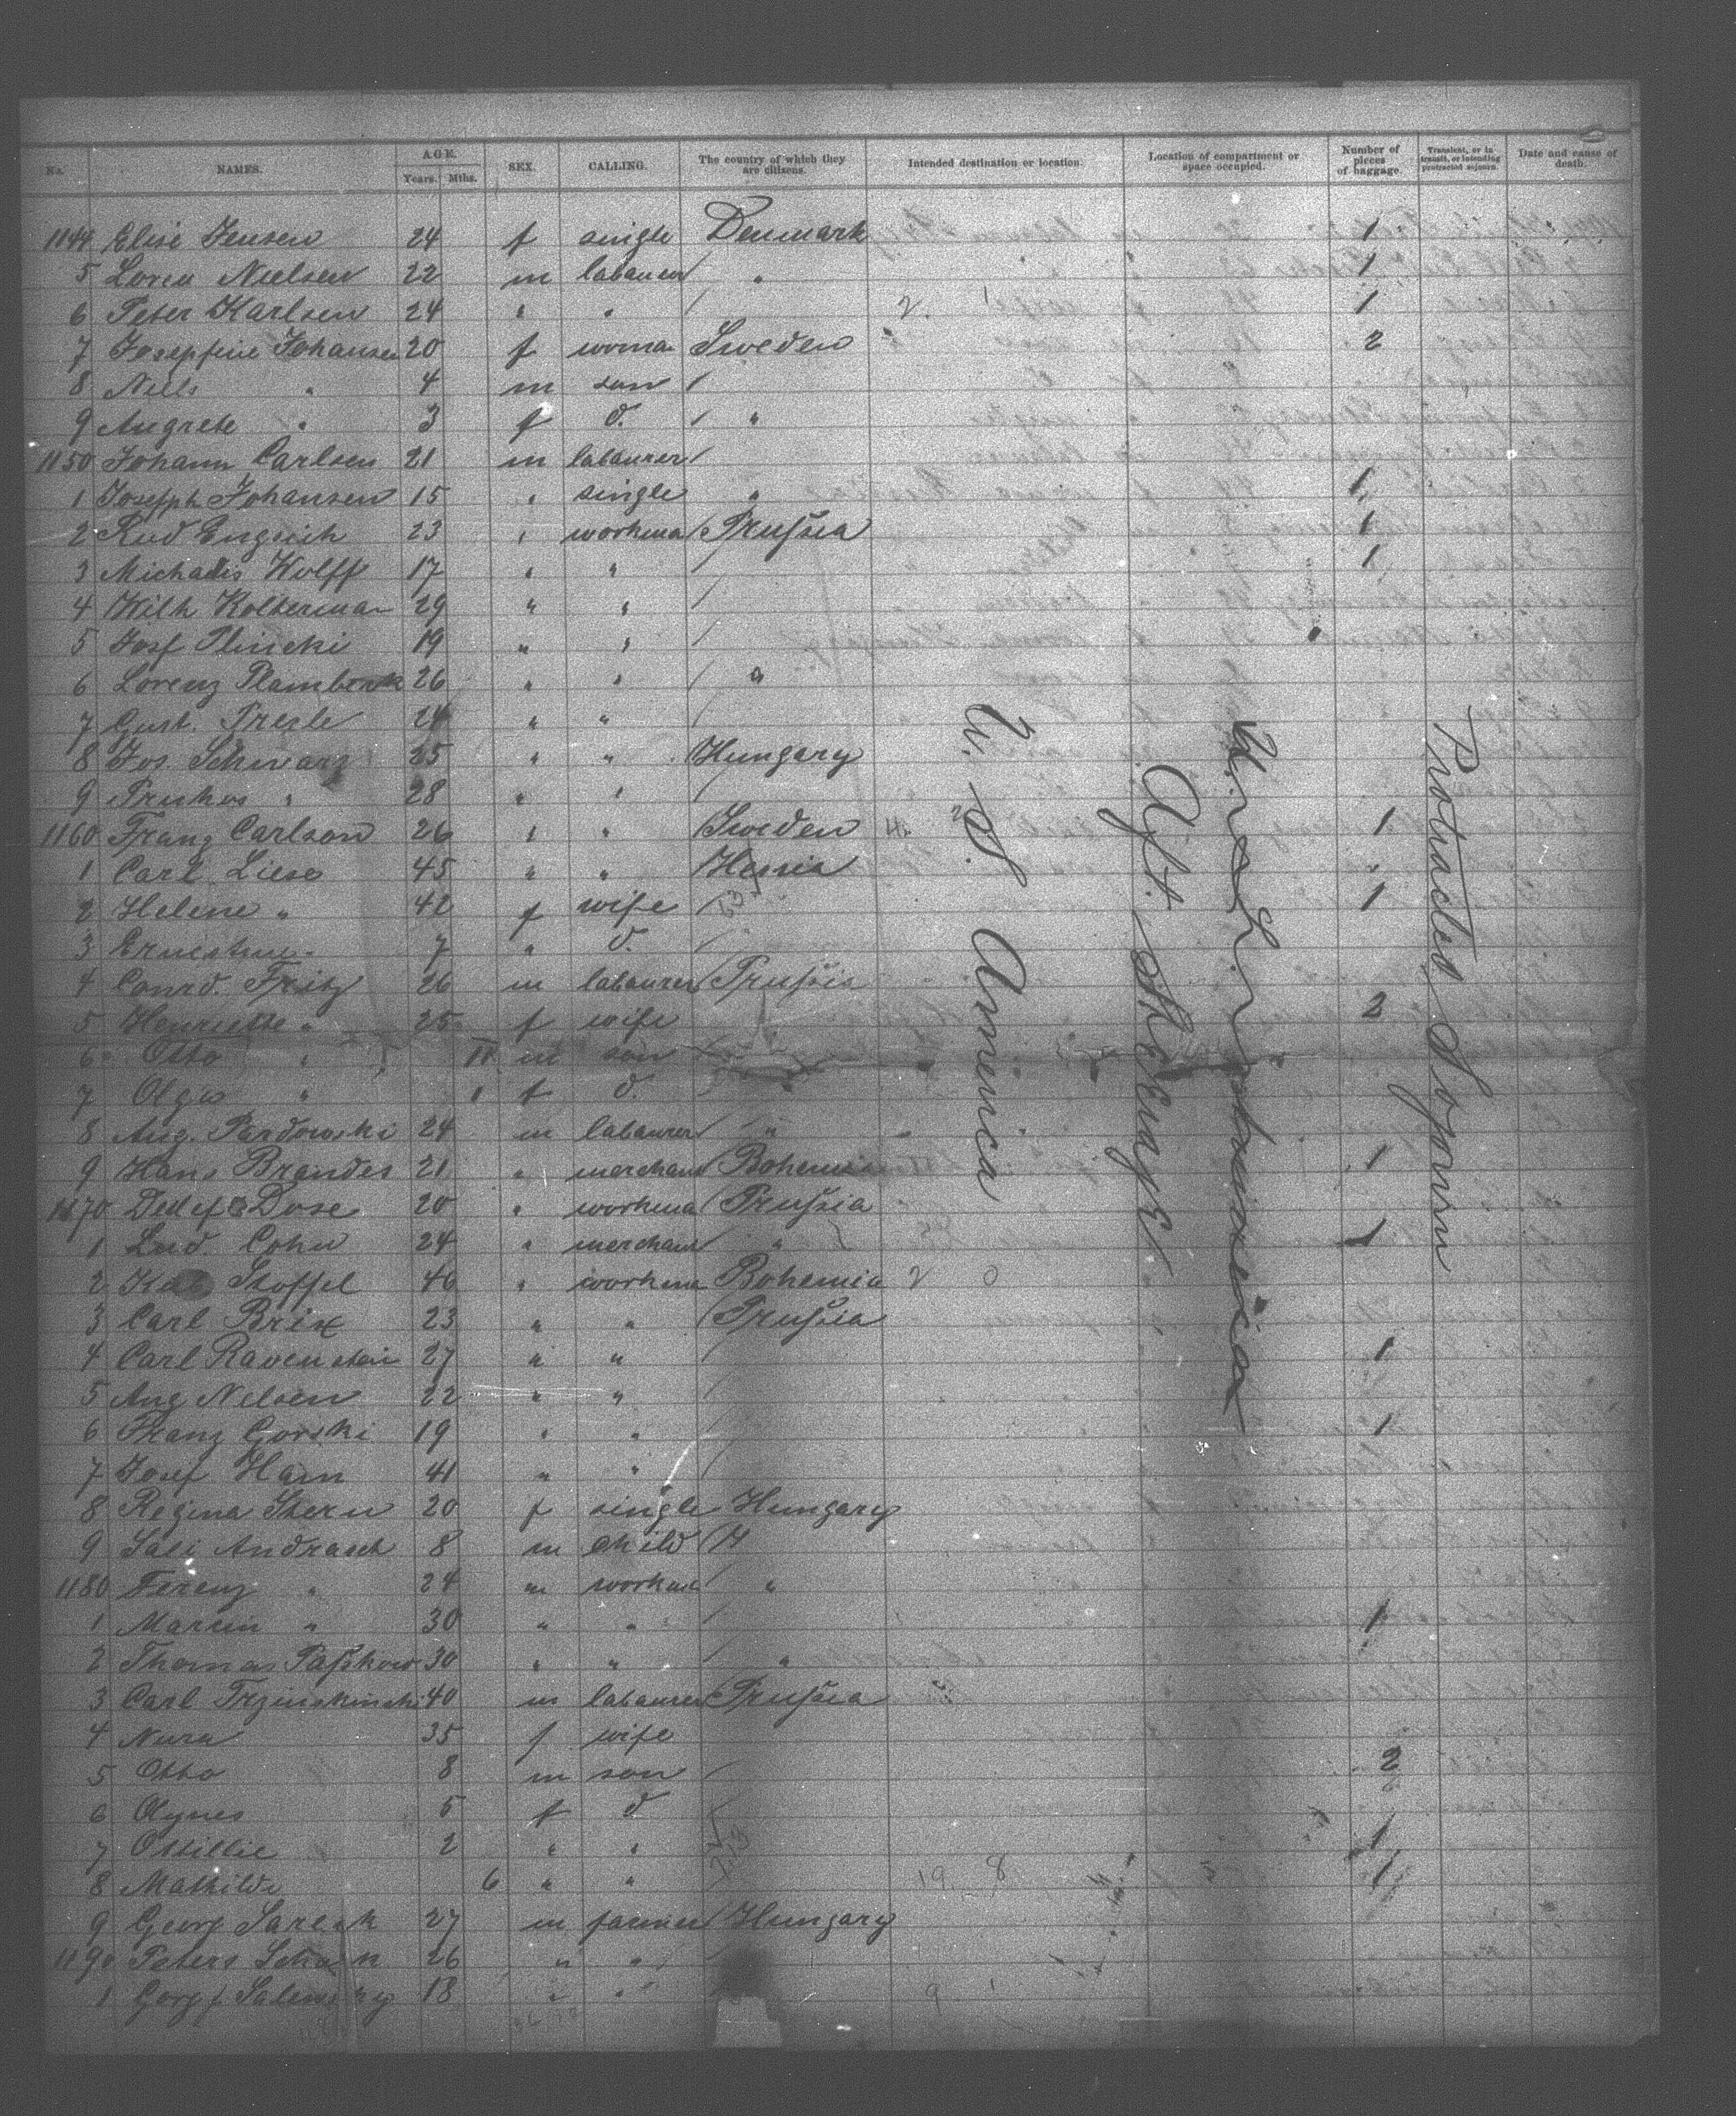 No. NAMES. AGE. Years. Mths. SEX. CALLING. The country of which they are citizens. Intended destination or location. Location of compartment or space occupied. Number of pieces of baggage. Transient, or in transit, or intending protracted sojourn. Date and cause of death.
1144 Elise Jensen 24 f single Denmark 1
5 Loren Nielsen 22 m labaurer / " 1
6 Peter Karlsen 24 " " / 1
7 Josepfine Johansen 20 f woman Sweden 2
8 Niels " 4 m son /
9 Angrete " 3 f d. / "
1150 Johann Carlsen 21 m labaurer /
1 Josepph Johansen 15 " single " 1
2 Rud 23 " workma / Prussia 1
3 Michaelis Wolff 17 " " / 1
4 Wilh Kolterman 29 " " /
5 Josf Plincki 19 " " /
6 Lorenz Plambeck 26 " " / "
7 Gust. 24 " " /
8 Jos. Schwarz 25 " " Hungary
9 " 28 " " /
1160 Franz Carlson 26 " " Sweden 1
1 Carl Liese 45 " " Hessia
2 Helene " 42 f wife / 1
3 Ernestine " 7 " d. /
4 Conrd. Fritz 26 m labaurer / Prussia
5 Henriette " 25 f wife 2
6 Otto " m son
7 Olga " 1 f d.
8 Aug. Pardowski 24 m labaurer / "
9 Hans Brandes 21 " merchant Bohemia 1
1170 Detlef Dose 20 " workma Prussia
1 Lud. Cohn 24 " merchant " 1
2 Stoffel 46 " workma Bohemia
3 Carl Brix 23 " " Prussia
4 Carl Ravenstein 27 " " / 1
5 Aug Nelsen 22 " " /
6 Franz Gorski 19 " " / 1
7 Josef Ham 41 " " /
8 Regina Stern 20 f single Hungary
9 Sali Andrasch 8 m child
1180 Ferenz " 24 m workma / "
1 Martin " 30 " " / 1
2 Thomas Paßkow 30 " " / "
3 Carl 40 m labaurer Prussia
4 Nura 35 f wife
5 Otto 8 m son / 2
6 Agnes 5 f d
7 Ottillie 2 " " 1
8 Mathilde 6 " " 1
9 Georg 27 m farmer Hungary
1190 Peters 26 " "
1 18 " "
U. S. America
Aft. Steerage
Protracted Sojourn